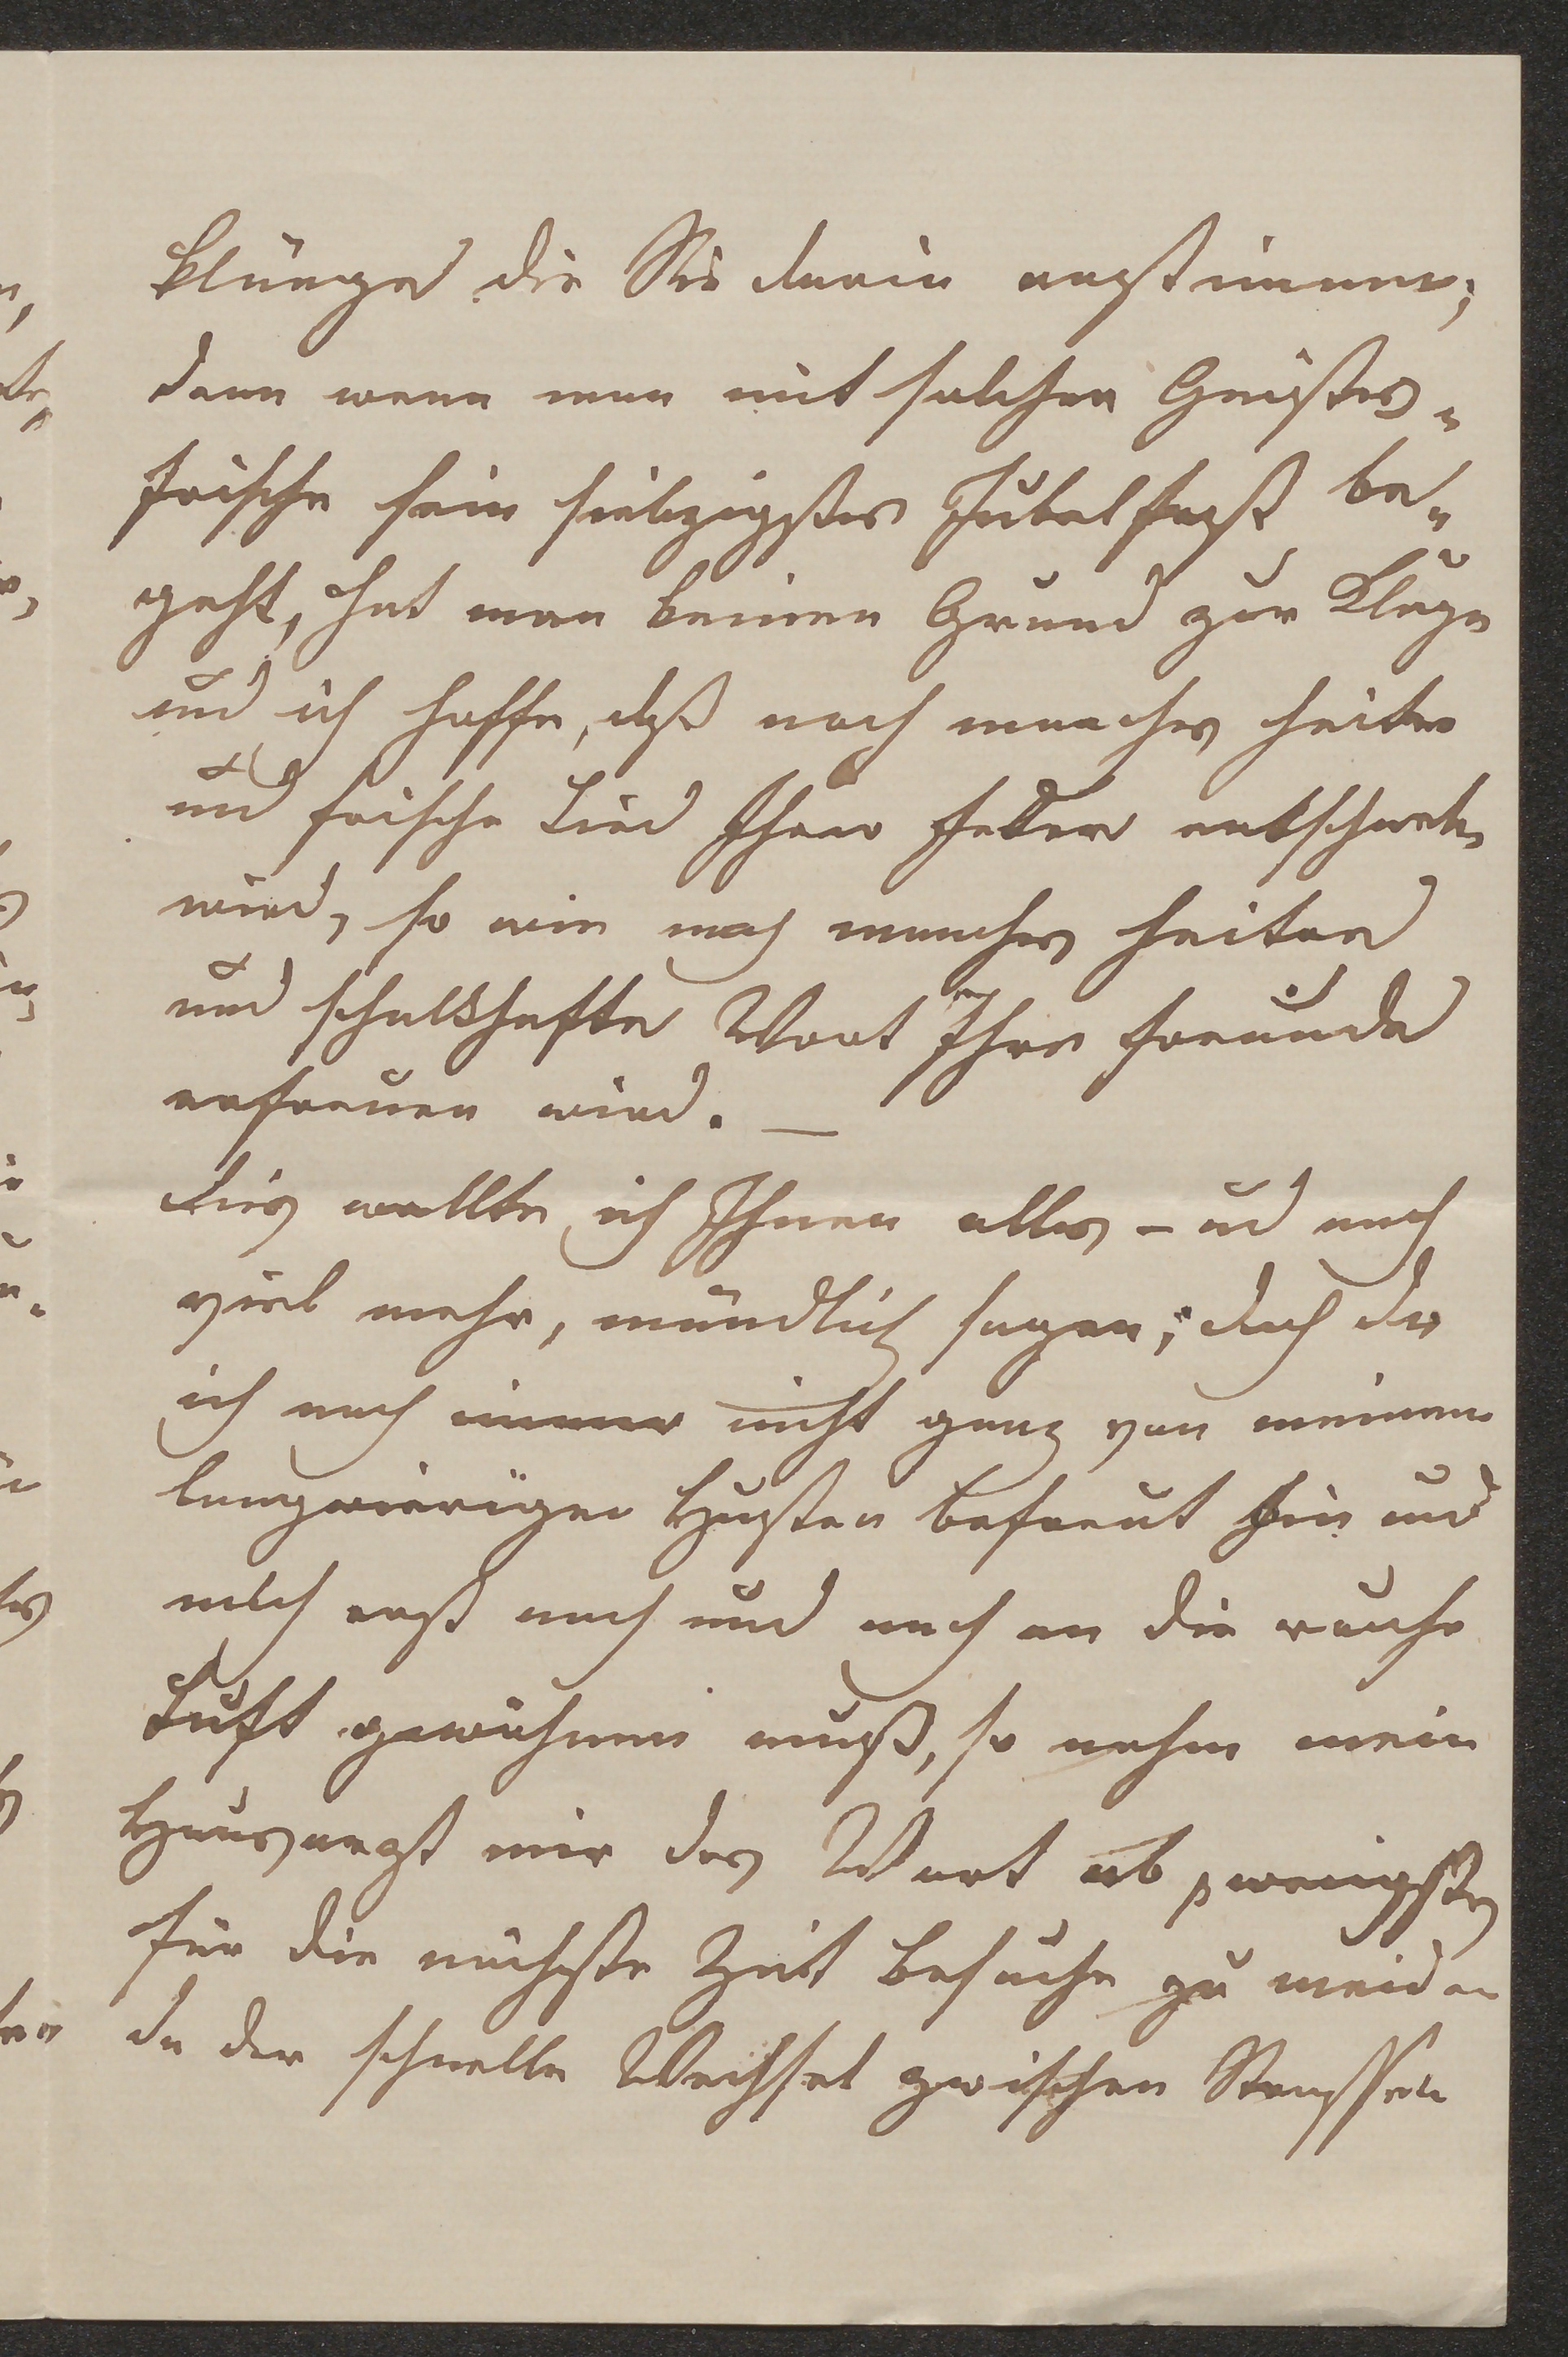 klänge die Sie darin anstimmen;
denn wenn man mit solcher Geistes-
frische sein siebzigstes Jubelfest be-
geht, hat man keinen Grund zur Klage
und ich hoffe, daß noch manches heitre
und frische Lied Ihrer Feder entschweben
wird, so wie noch manches heitere
und schalkhafte Wort Ihre Freunde
erfreuen wird. —
Dies wollte ich Ihnen alles – ud noch
viel mehr, mündlich sagen; doch da
ich noch immer nicht ganz von meinem
langwierigen Husten befreut bin und
mich erst nach und nach an die rauhe
Luft gewöhnen muß, so nahm mein
Hausarzt mir das Wort ab wenigstens
für die nächste Zeit Besuche zu meiden
da der schnelle Wechsel zwischen Strassen